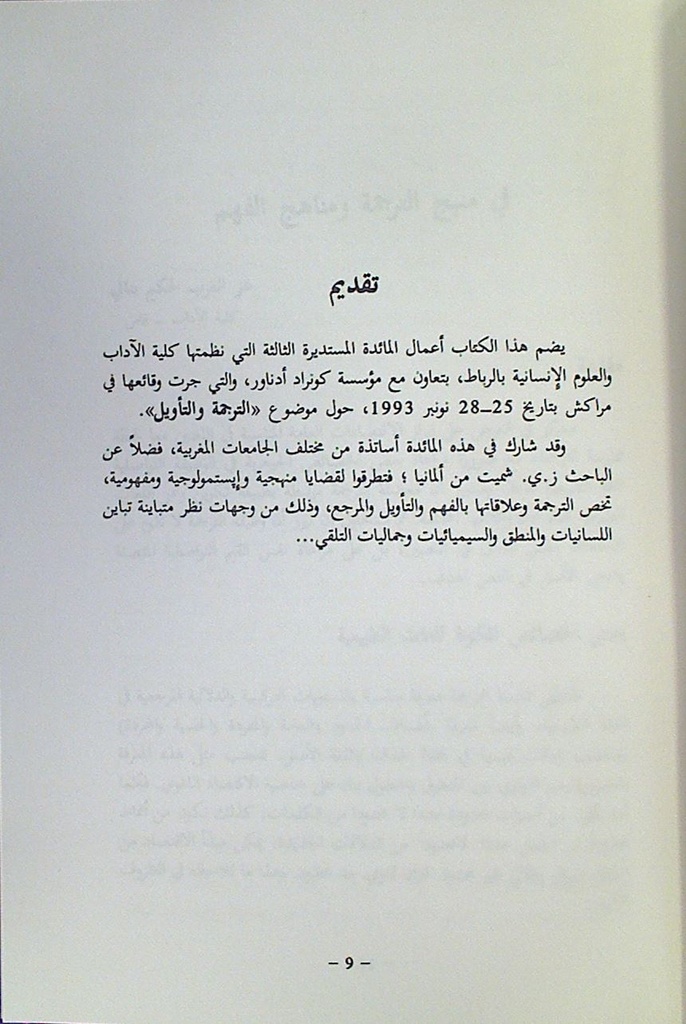 تقديم
يضم هذا الكتاب أعمال المائدة المستديرة الثالثة التي نظمتها كلية الآداب
والعلوم الإنسانية بالرباط، بتعاون مع مؤسسة كونراد أدناور، والتي جرت وقائعها في
مراكش بتاريخ 25–28 نونبر 1993، حول موضوع «الترجمة والتأويل».
وقد شارك في هذه المائدة أساتذة من مختلف الجامعات المغربية، فضلاً عن
الباحث ز.ي. شميت من ألمانيا ؛ فتطرقوا لقضايا منهجية وإيستمولوجية ومفهومية،
تخص الترجمة وعلاقاتها بالفهم والتأويل والمرجع، وذلك من وجهات نظر متباينة تباين
اللسانيات والمنطق والسيميائيات وجماليات التلقي...
– 9 –